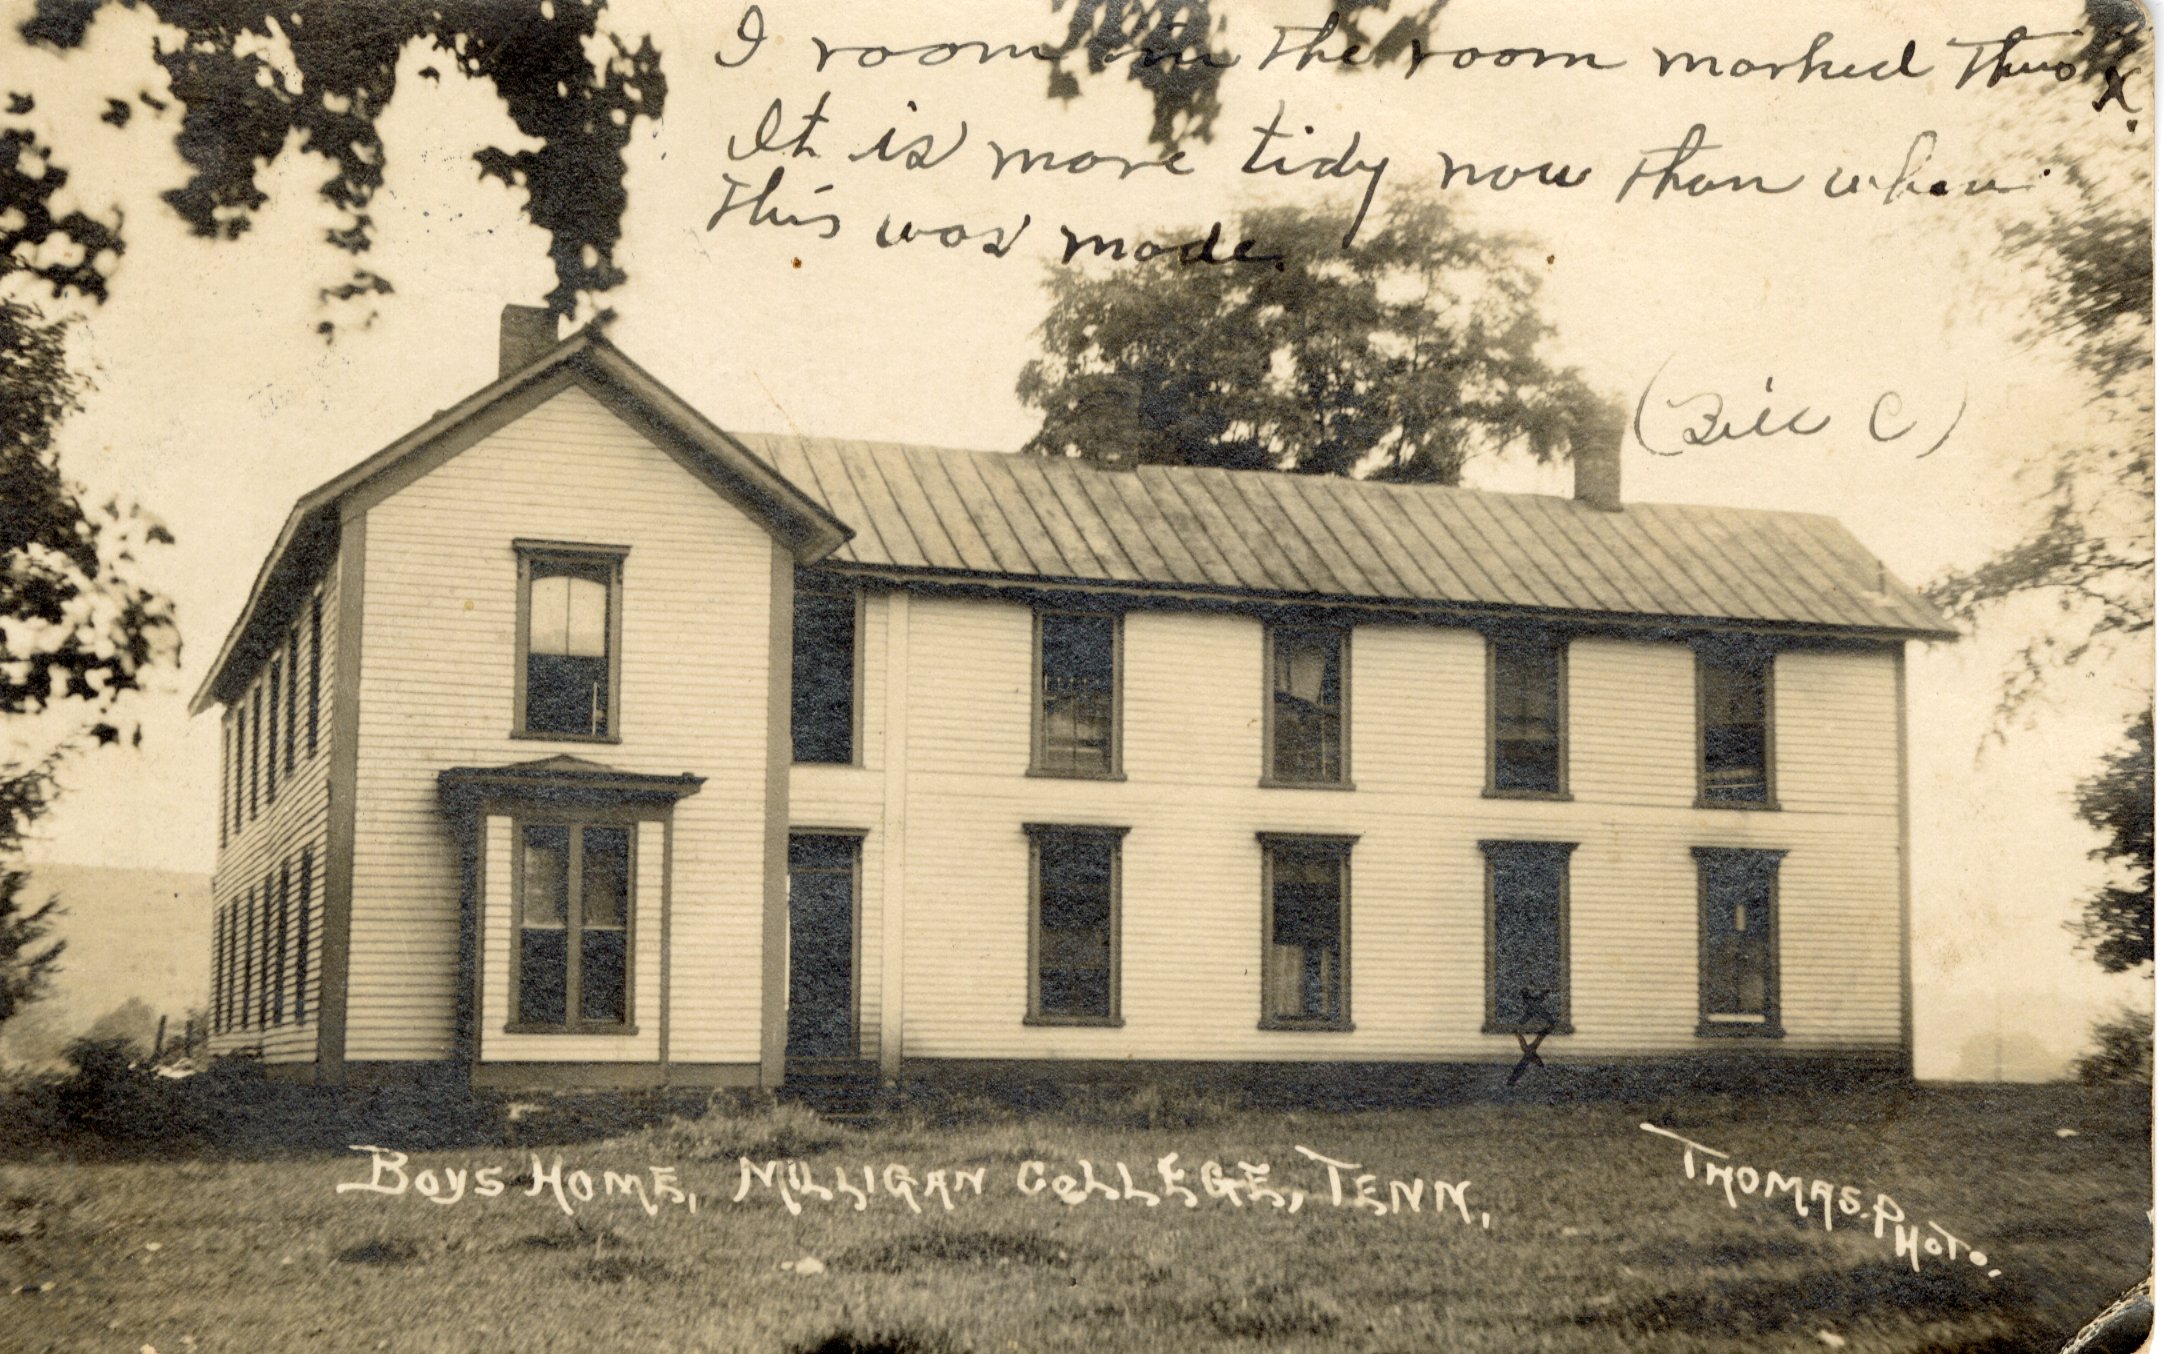 I room in the room marked thus X.
It is more tidy now than when
this was made.
(Bill C)
X
BOYS HOME, MILLIGAN COLLEGE, TENN,
THOMAS. PHOTO.